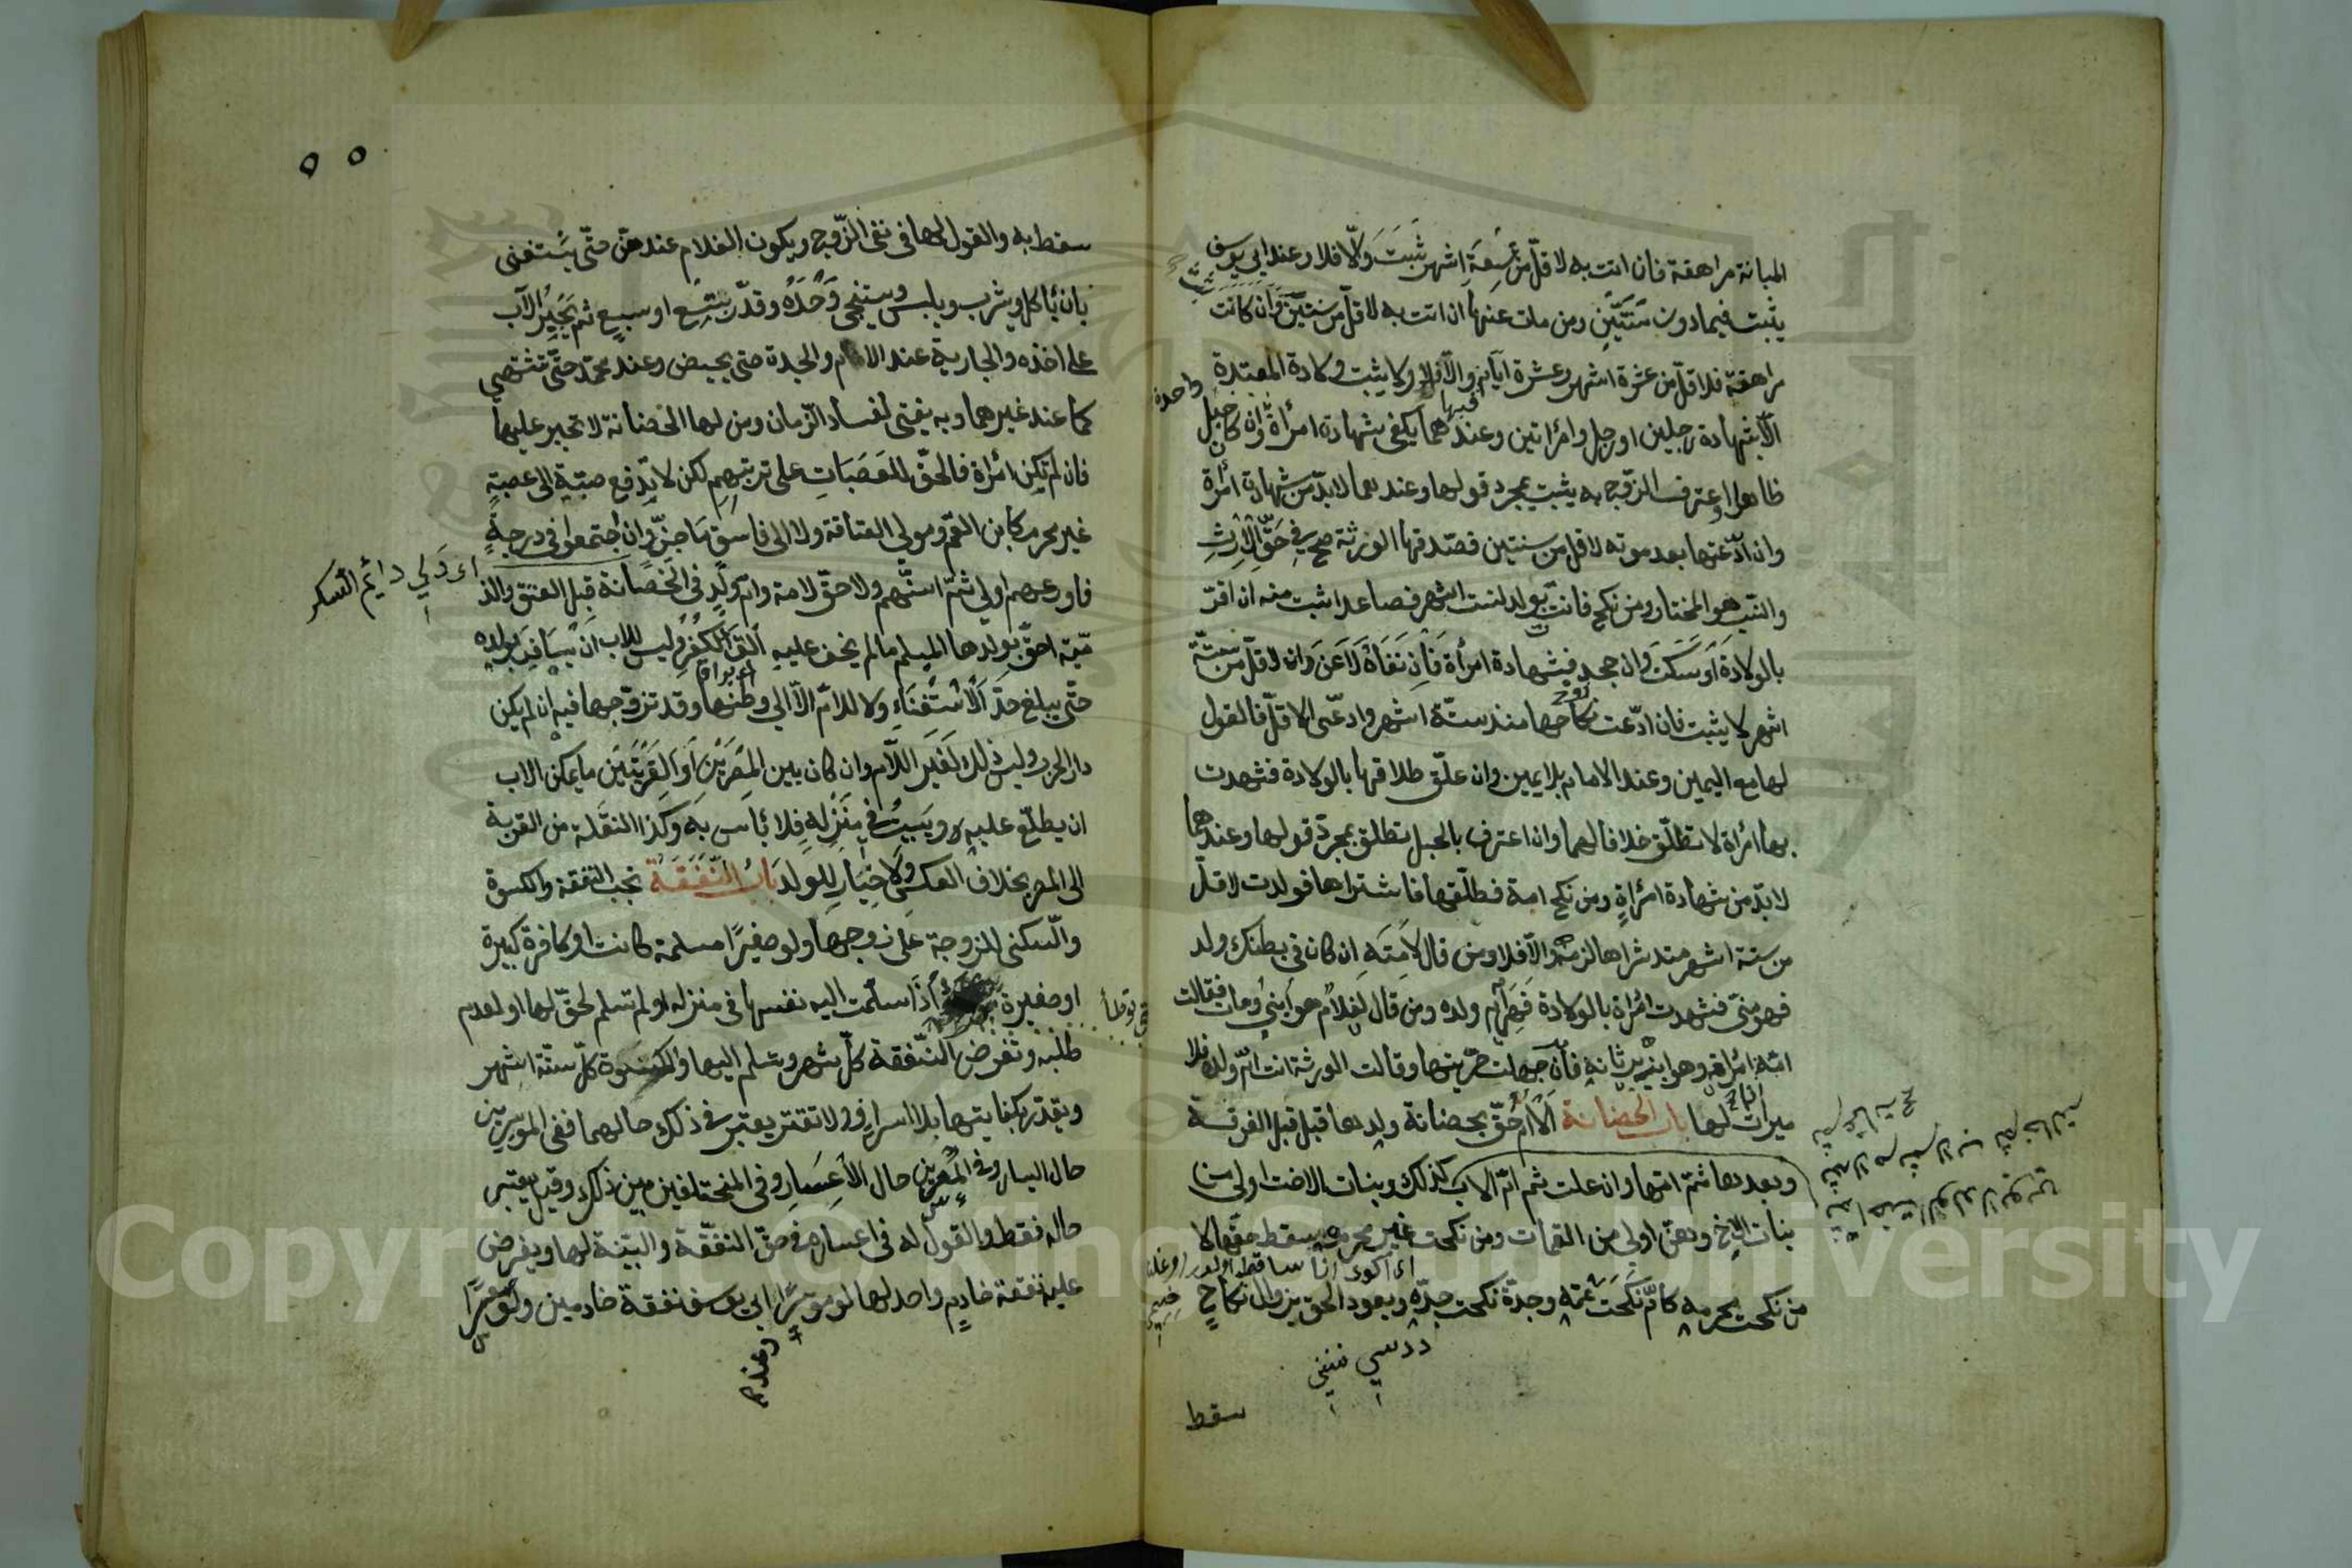 المبانة مراهقة فان اتت به لاقلّ من تسعة اشهر ثبت والّا فلا وعند ابي يوسف
يثبت فيما دون سنتين ومن مات عنها ان اتت به لاقلّ من سنتين وان كانت
مراهقة فلاقلّ من عشرة اشهر وعشرة ايّام والّا فلا ولا يثبت ولادة المعتدة
الّا بشهادة رجلين او رجل وامرأتين وعندهما يكفى شهادة امرأة وان كان حبل
واحدة
فيها
ظاهرا او اعترف الزّوج به يثبت بمجرد قولها وعندهما لا بدّ من شهادة امرأة
وان ادّعتها بعد موته لاقل من سنتين فصدّقها الورثة صح في حقّ الارث
والنسب هو المختار ومن نكح فاتت بولد لستة اشهر فصاعدا ثبت منه ان اقرّ
بالولادة او سكت وان جحد فبشهادة امرأة فان نفاه لاعن وان لاقلّ من ستّة
اشهر لا يثبت فان ادّعت نكاحها منذ ستّة اشهر وادعّى الاقلّ فالقول
لها مع اليمين وعند الامام بلا يمين وان علّق طلاقها بالولادة فشهدت
بها امرأة لا تطلّق خلافا لهما وان اعترف بالحبل تطلق بمجرّد قولها وعندهما
لا بدّ من شهادة امرأة ومن نكح امة فطلّقها فاشتراها فولدت لاقلّ
من ستة اشهر منذ شراها لزمه والّا فلا ومن قال لامته ان كان في بطنك ولد
فهو منّى فشهدت امرأة بالولادة فهي امّ ولده ومن قال لغلام هو ابني ومات فقالت
امّه انا امرأته وهو ابنه يرثانه فان جهلت حرّيتها وقالت الورثة انت امّ ولده فلا
ميراث لها باب الحضانة الامّ احقّ بحضانة ولدها قبل الفرقة
وبعدها ثمّ امّها وان علت ثم امّ الاب كذلك وبنات الاخت اولى من
بنات الاخ وهنّ اولى من العمّات ومن نكحت غير محرمه سقط حقّها لا
من نكحت بحرمه كامّ نكحت عمّه وجدّة نكحت جدّه ويعود الحق بزوال نكاح
سقط
٥٥
سقط به والقول لها في نفى الزّوج ويكون الغلام عندهنّ حتّى يستغنى
بان يأكل ويشرب ويلبس ويستنجى وحده وقدّر بتسع او سبع ثم يجبر الاب
على اخذه والجارية عند الام والجدة حتى يحيض وعند محمّد حتّى تشتهى
كما عند غيرهما وبه يفتى لفساد الزّمان ومن لها الحضانة لا تجبر عليها
فان لم تكن امرأة فالحقّ للعصبات على ترتيبهم لكن لا يدفع صبيّة الى عصبة
غير محرم كابن العمّ ومولى العتاقة ولا الى فاسق ماجن وان اجتمعوا في درجة
اى دلي دايم السكر
فاورعهم اولى ثمّ اسنّهم ولا حقّ لامة وامّ ولد في الحضانة قبل العتق والذ
ميّة احقّ بولدها المسلم مالم يخف عليه الق الكفر وليس للاب ان يسافر بولده
حتّى يبلغ حدّ الاستغناء ولا للامّ الّا الى وطنها وقد تزوّجها فيه ان لم يكن
دار الحرب وليس ذلك لغير الامّ وان كان بين المصرين او القريتين ما يمكن الاب
ان يطلّع عليه ويبيت في منزله فلا بأس به وكذا النقلة من القرية
الى المصر بخلاف العكس ولا خيار للولد باب النّفقة تجب النفقة والكسوة
والسّكنى للزوجة على زوجها ولو صغيرًا مسلمة كانت او كافرة كبيرة
او صغيرة اذا سلّمت اليه نفسها في منزله او لم تسلم لحقّ لها او لعدم
توطأ
طلبه وتفرض النّفقة كلّ شهر وتسلم اليها والكسوة كلّ ستّة اشهر
ويقدّر بكفايتها بلا اسراف ولا تقتير يعتبر في ذلك حالهما ففى الموسرين
حال اليسار وفي المعسرين حال الاعسار وفي المختلفين بين ذلك وقيل يعتبر
حاله فقط والقول له في اعساره في حقّ النفقة والبيّنة لها ويفرض
عليه نفقة خادم واحد لها لو موسرًا ابى يوسف نفقة خادمين ولو معسرًا
وعند
Copyright © King Saud University